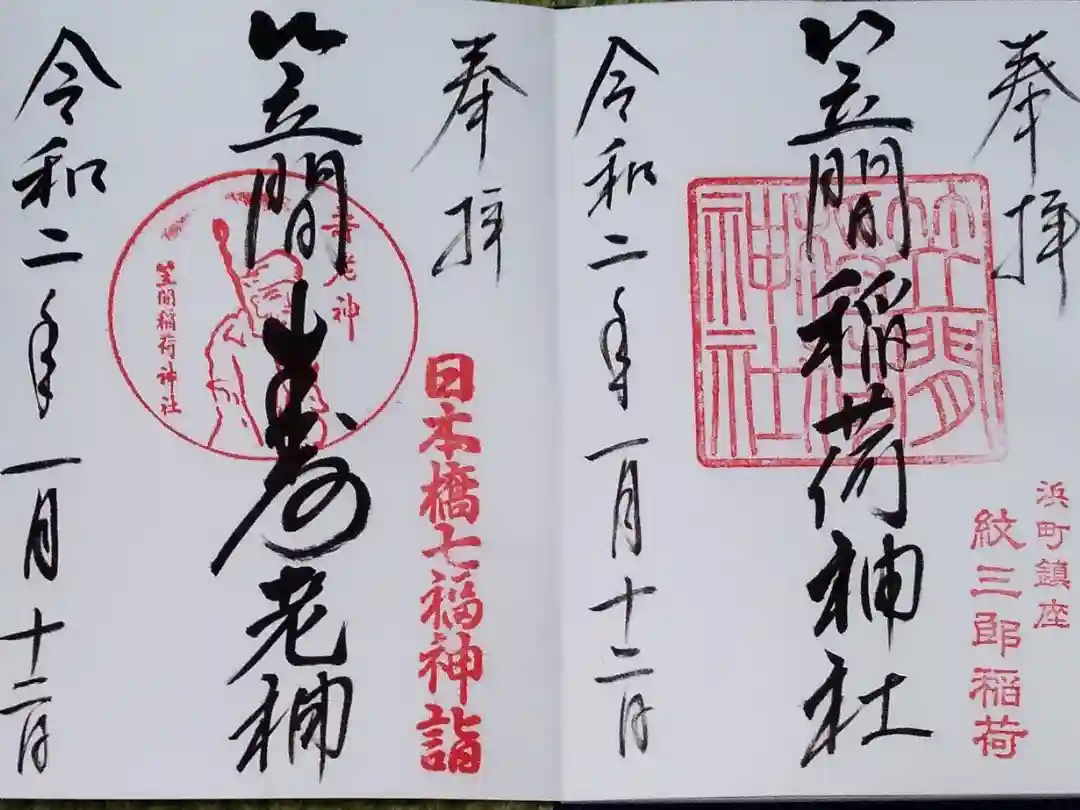 奉拝
浜町鎮座
紋三郎稲荷
笠間稲荷神社
笠間稲荷神社
令和二年一月十二日
奉拝
日本橋七福神詣
笠間寿老神
寿老神
笠間稲荷神社
令和二年一月十二日